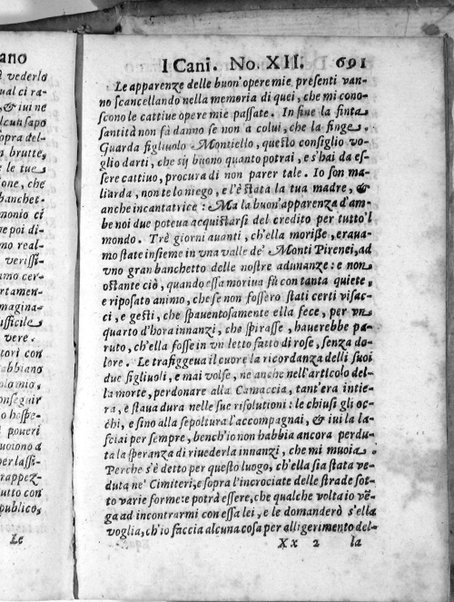 I Cani. No. XII. 691
Le apparenze delle buon'opere mie presenti van-
no scancellando nella memoria di quei, che mi cono-
scono le cattiue opere mie passate. In fine la finta
santità non fà danno se non a colui, che la finge.
Guarda figliuolo Montiello, questo consiglio vo-
glio darti, che sij buono quanto potrai, e s'hai da es-
sere cattiuo, procura di non parer tale. Io son ma-
liarda, non te lo niego, e l'è stata la tua madre, &
anche incantatrice: Ma la buon'apparenza d'am-
be noi due poteua acquistarsi del credito per tutto'l
mondo. Trè giorni auanti, ch'ella morisse, eraua-
mo state insieme in vna valle de' Monti Pirenei, ad
vno gran banchetto delle nostre adunanze: e non
ostante ciò, quando essa moriua fù con tanta quiete,
e riposato animo, che se non fossero stati certi visac-
ci, e gesti, che spauentosamente ella fece, per vn
quarto d'hora innanzi, che spirasse, hauerebbe pa-
ruto, ch'ella fosse in vn letto fatto di rose, senza do-
lore. Le trafiggeua il cuore la ricordanza delli suoi
due figliuoli, e mai volse, ne anche nell'articolo del-
la morte, perdonare alla Camaccia, tant'era intie-
ra, e staua dura nelle sue risolutioni: le chiusi gli oc-
chi, e sino alla sepoltura l'accompagnai, & iui la la-
sciai per sempre, bench'io non habbia ancora perdu-
ta la speranza di riuederla innanzi, che mi muoia.
Perche s'è detto per questo luogo, ch'ella sia stata ve-
duta ne' Cimiteri, e sopra l'incrociate delle strade sot-
to varie forme: e potrà essere, che qualche volta io vẽ-
ga ad incontrarmi con essa lei, e le domanderò s'ella
voglia, ch'io faccia alcuna cosa per alligerimento del-
Xx 2 la
ano
à vederlo
ual ci ra-
, & iui ne
sopra del-
n brutte,
e le tue
banchet-
monio ci
ne poi di-
mo real-
verissi-
mo cer-
artamen-
magina-
ufficile
tori con
abbiano
conseguir
i poueri
trappez-
tutto con
publico,
Le